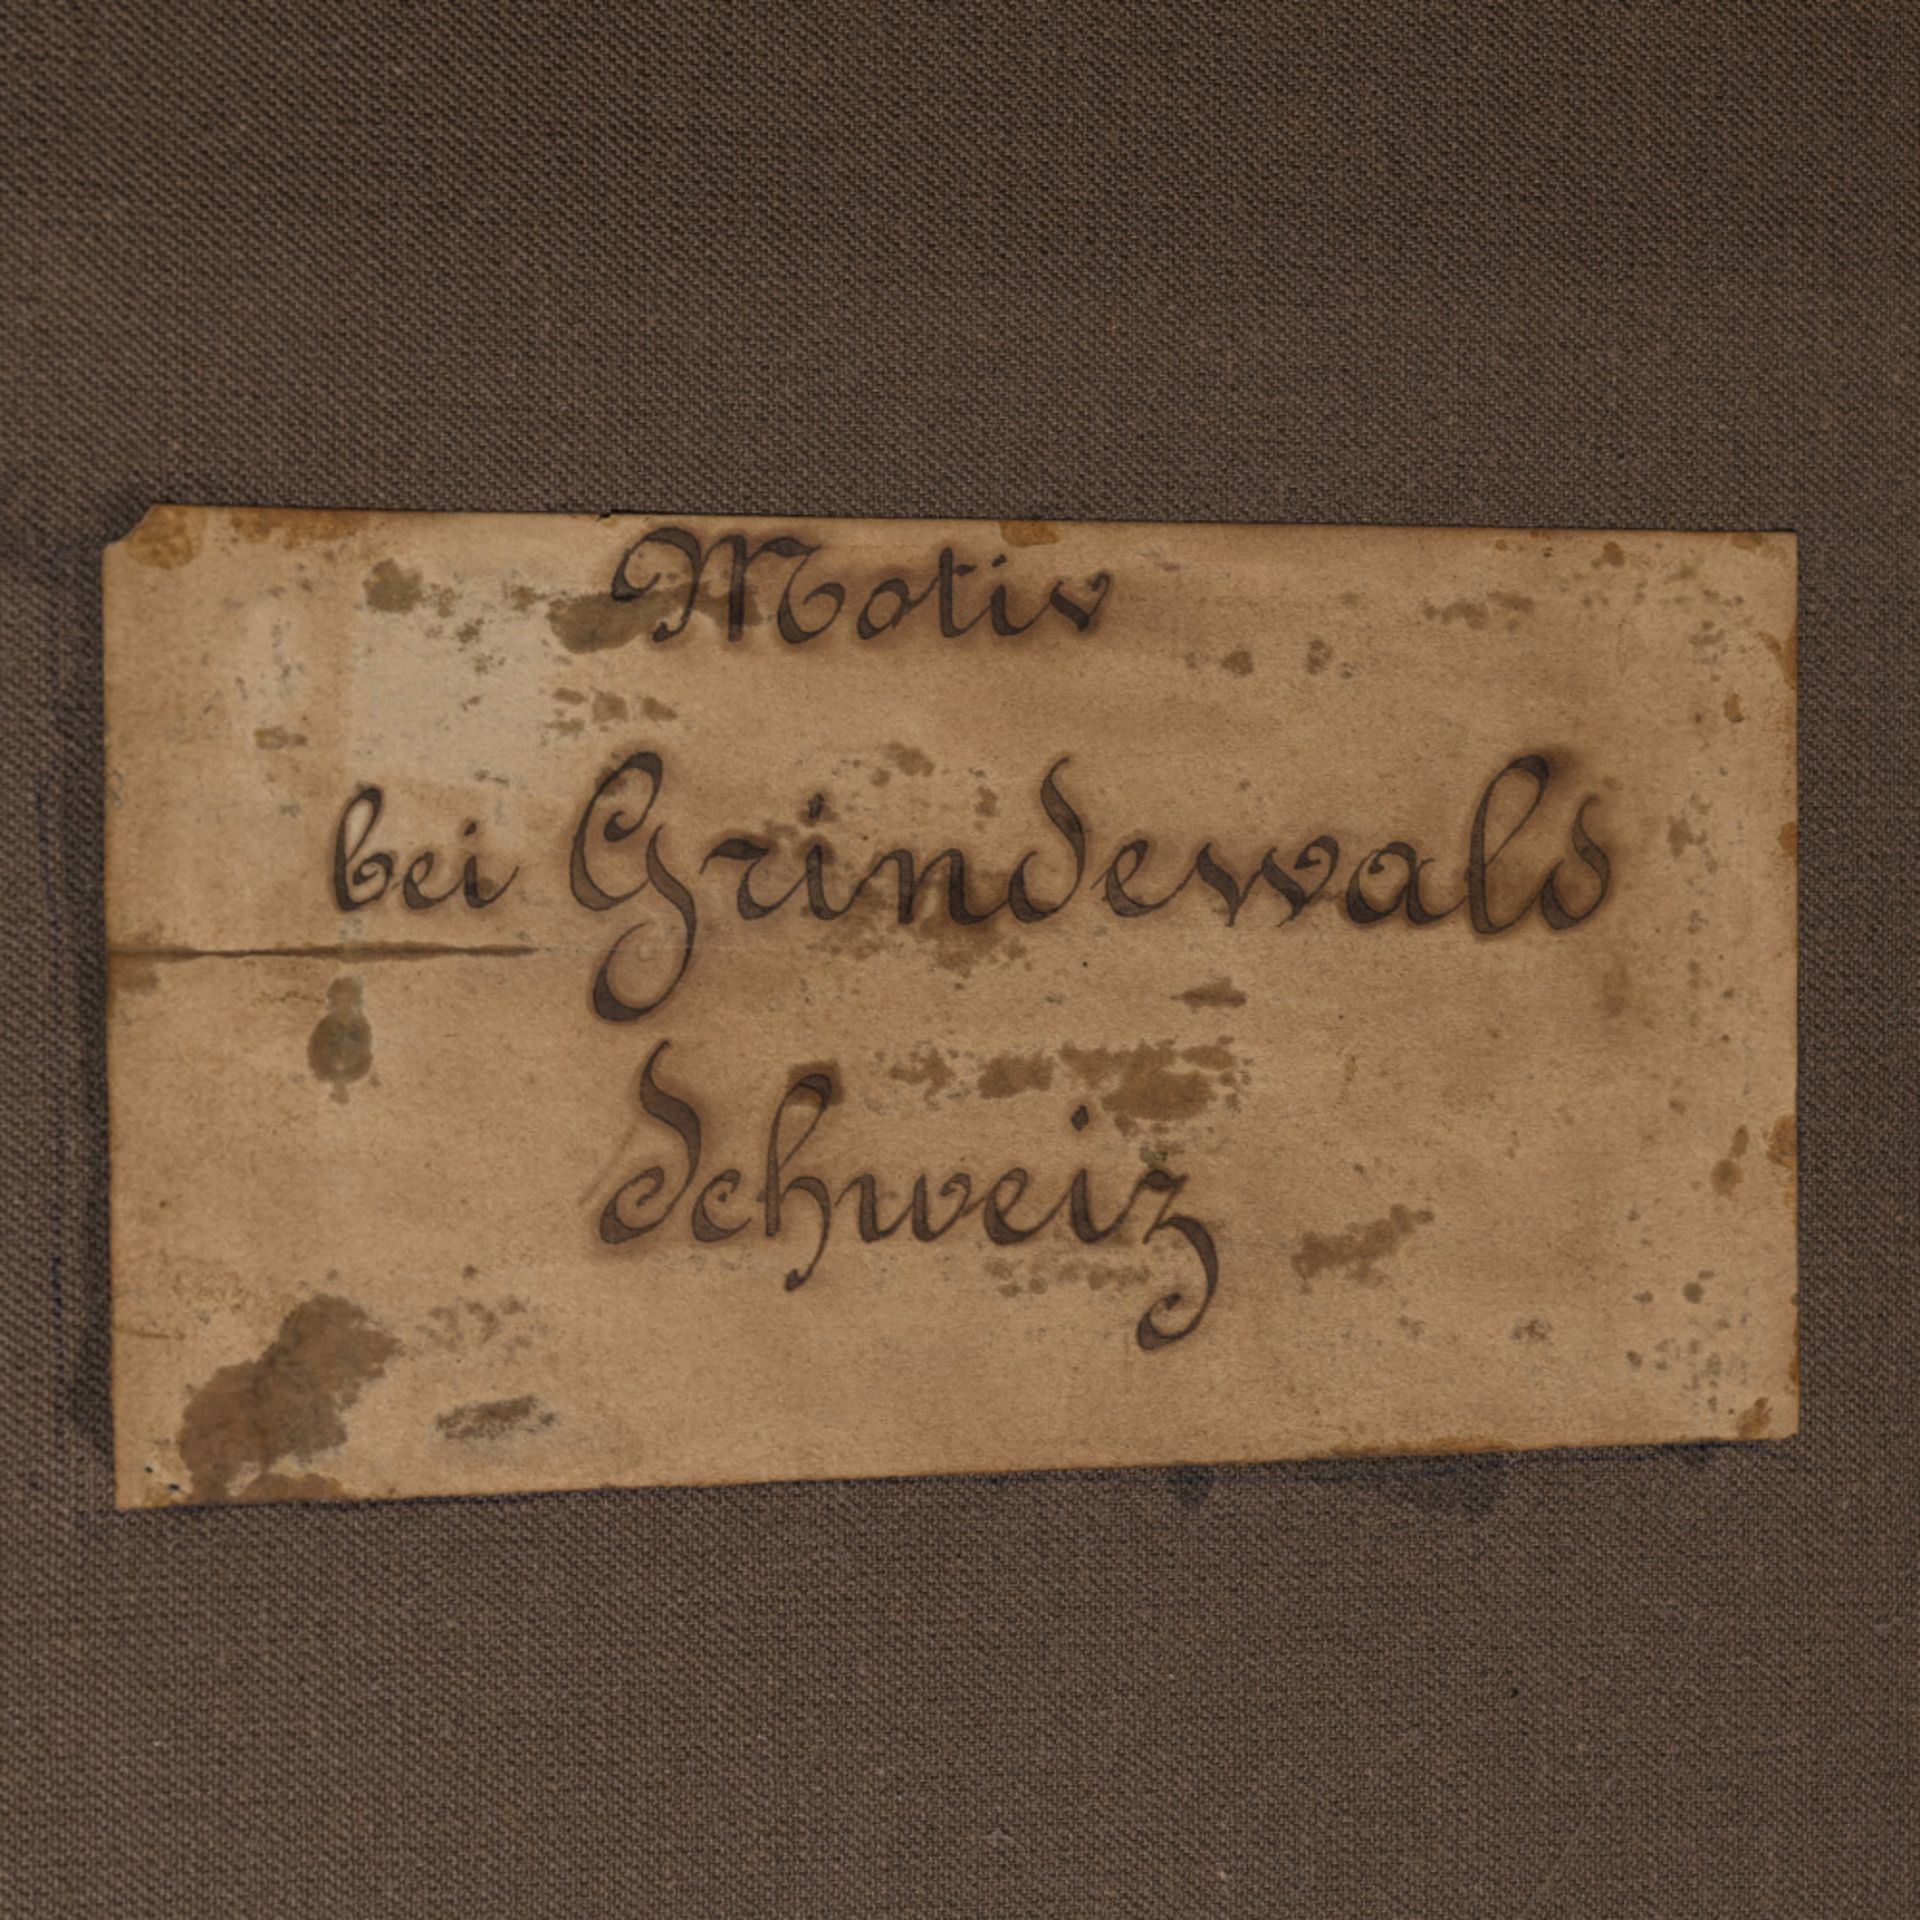 Motiv
bei Grindewald
Schweiz